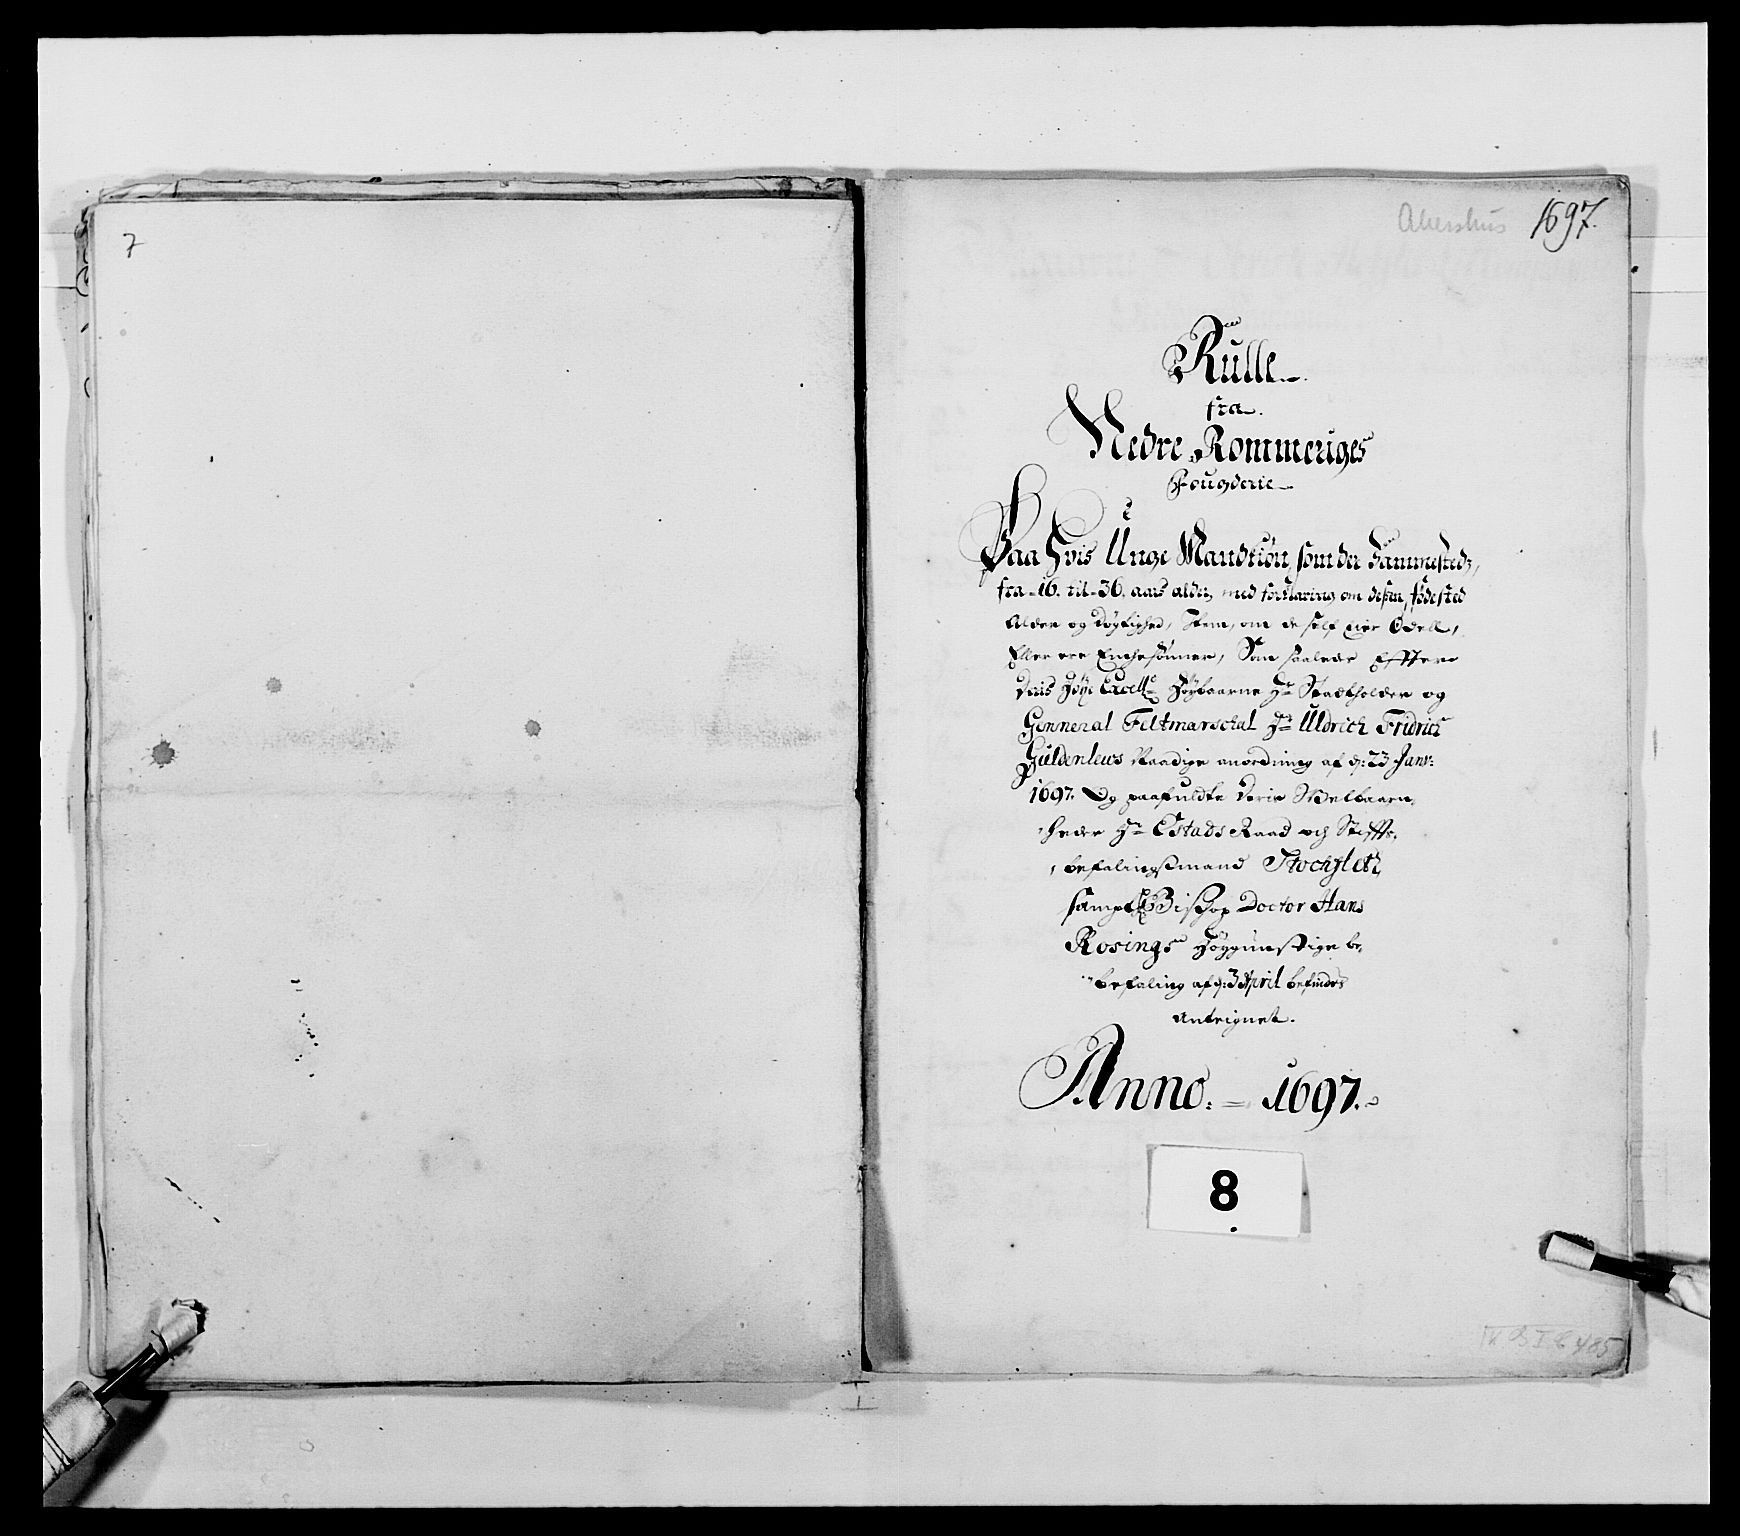 7
Akershus 1697.
Rulle
fra
Nedre Rommeriges
Fougderie
Paa Hvis Unge Mandkiøn, som der Sammesteds,
fra 16. til 36. aars alder, med forklaring om deßen, fødested
Alder og Døgtighed, Item, om de self eier Odell,
Eller ere Enchesønner, Som saalede Effter
Deris Høye Excell: Høybaarne Hr Stadtholder og
Genneral Feltmarschal Hr Uldrich Fridrich
Guldenlews Naadige anordning af d: 23 Janv:
1697. Og paafuldte Deris Welbaarn,
heder Hr Estads Raad och Stiffts,
befalingsmand Stochfleth,
sampt Bishop Doctor Hans
Rosings Høygunstige be,
befaling af d: 3 April befindes
Anteignet.
Anno. 1697.
8
485